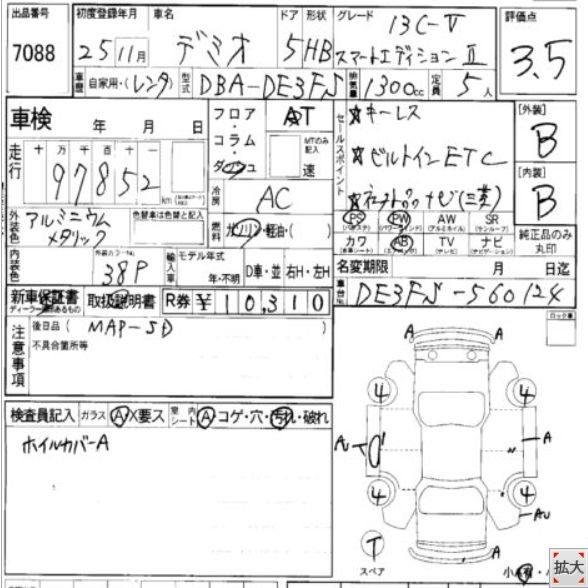 出品番号 初度登録年月 車名 ドア 形状 グレード 評価点
7088 25年11月 デミオ 5 HB 13C-V スマートエディションⅡ 3.5
車歴 自家用・(レンタ) 型式 DBA-DE3FS 排気量 1300cc 定員 5人
車検 年 月 日
フロア・コラム・ダッシュ AT MTのみ記入 速
セールスポイント ☆キーレス
☆ビルトインETC
[外装] B
走行 十万千百十一
97852 km
冷房 AC
[内装] B
外装色 アルミニウムメタリック 色替車は色替と記入
燃料 ガソリン・軽油・( )
PS (パワステ) PW (パワーウインド) AW (アルミホイル) SR (サンルーフ)
カワ AB TV (テレビ) ナビ (ナビゲーション)
純正品のみ丸印
内装色 外装カラーNo. 38P
輸入車 モデル年式 年・不明 D車・並 右H・左H
名変期限 月 日迄
新車保証書 取扱説明書 R券 ¥10,310
車台No. DE3FS-560124
注意事項 後日品( MAP-SD )
不具合箇所等
ロック車
検査員記入 ガラス A X要ス 室内シート A コゲ・穴・汚れ・破れ
ホイルカバーA
A
4 4
A
4 4
A
T
スペア
拡大